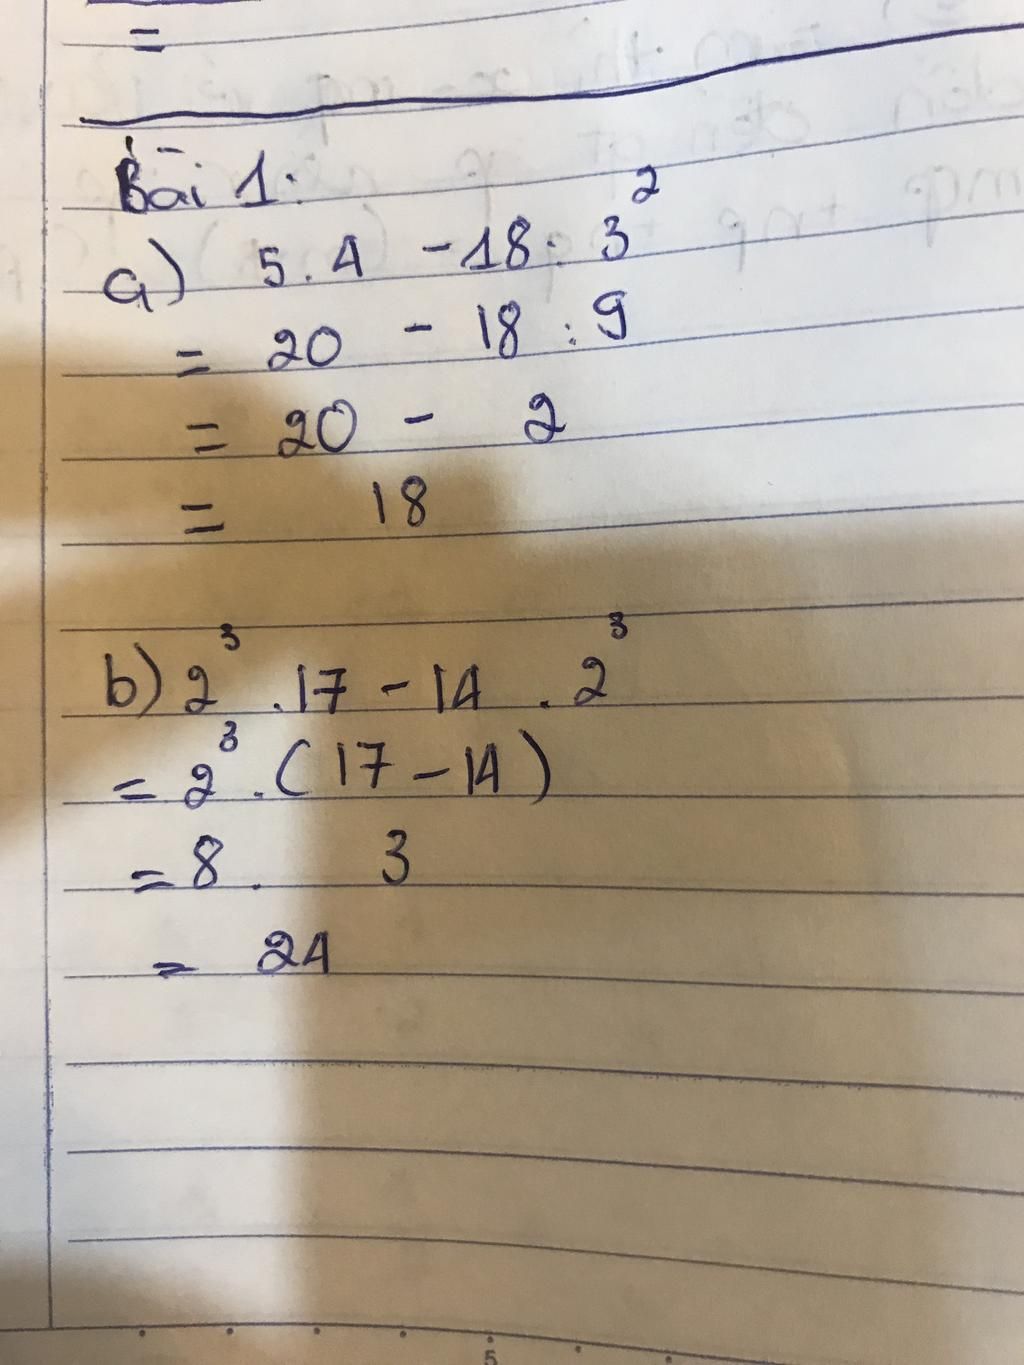 =
Bài 1:
a) 5.4 - 18 : 3²
= 20 - 18 : 9
= 20 - 2
= 18
b) 2³ . 17 - 14 . 2³
= 2³ . (17 - 14)
= 8 . 3
= 24
5